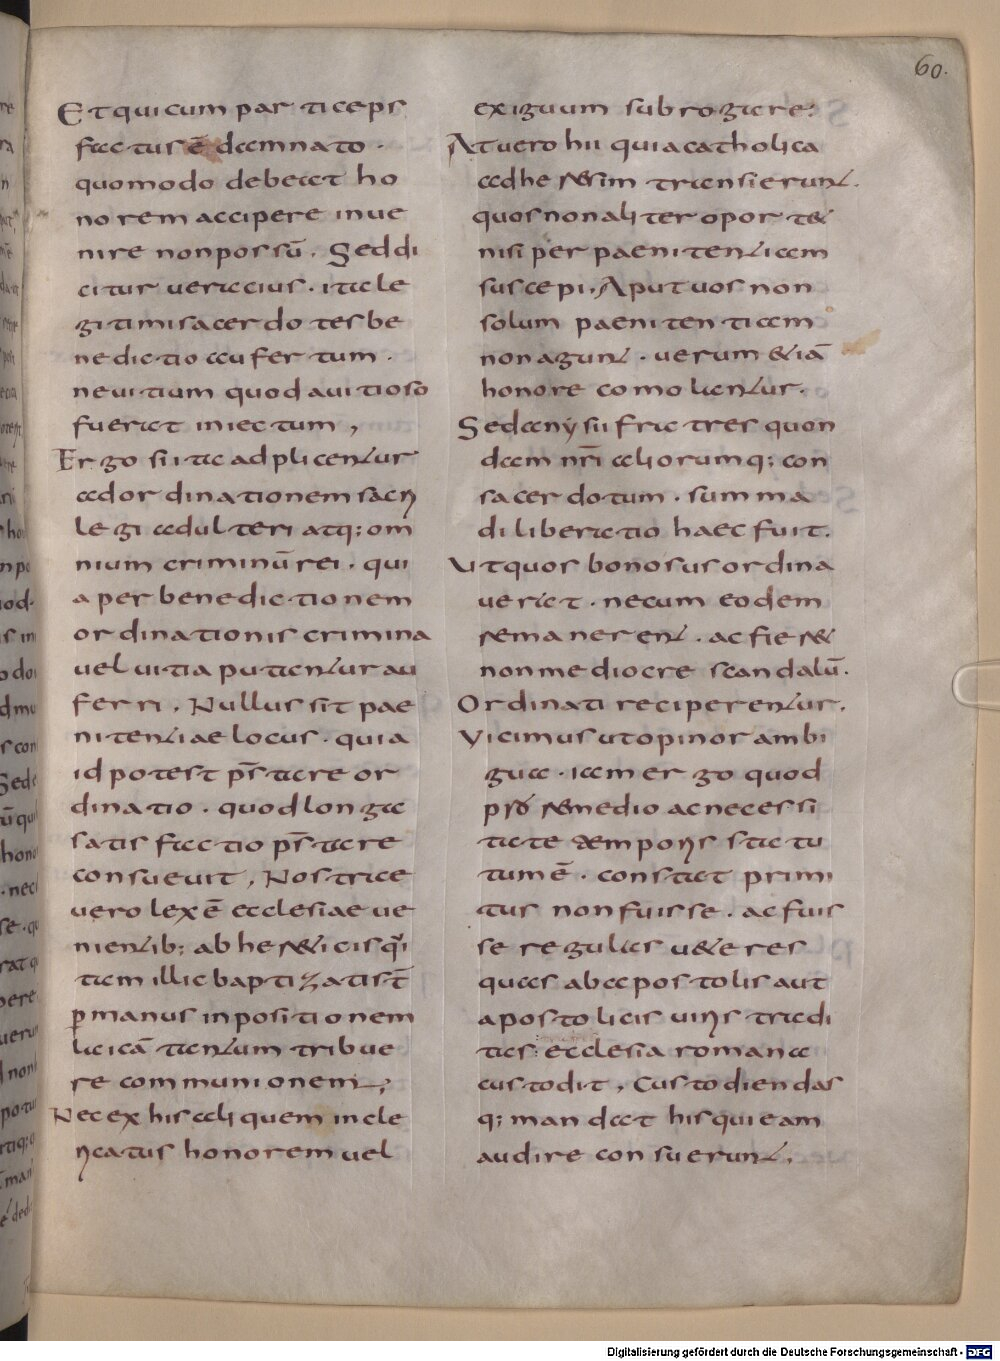 60.
Et qui cum par ticeps
factus ē damnato .
quomodo debeat ho
norem accipere inue
nire non possū . Sed di
citur uera cius . ita le
gitimi sacerdotes be
nedictio aufer tum .
ne uitium quod a uitioso
fuerat iniectum ,
Ergo si ita adplicentur
ad ordinationem sacri
legi adulteri atq; om
nium criminū rei . qui
a per benedictionem
ordinationis crimina
uel uitia putantur au
ferri . Nullus sit pae
nitentiae locus . quia
id potest p̄stare or
dinatio . quod longa
satisfactio p̄stare
consueuit , Nostrae
uero lex ē ecclesiae ue
nientib; ab heret&icis q̄
tam illic baptizatis t̄
p manus inpositionem
laicā tantum tribue
re communionem ;
Nec ex his aliquem in cle
ricatus honorem uel
exiguum subrogare ;
At uero hii qui a catholica
ad heresim transierunt .
quos non aliter oport&
nisi per paenitentiam
suscepi . Aput uos non
solum paenitentiam
non agunt . uerum &iā
honore comolantur .
Sed anysii fratres quon
dam nr̄i aliorumq; con
sacerdotum . summa
diliberatio haec fuit .
Ut quos bonosus ordina
uerat . ne cum eodem
remanerent . ac fier&
non mediocre scandalū .
Ordinati reciperentur .
Vicimus ut opinor ambi
gua . iam ergo quod
pro remedio ac necessi
tate temporis statu
tum ē . constat primi
tus non fuisse . ac fuis
se regulas u&eres
quas ab apostolis aut
apostolicis uiris tradi
tas : ecclesia romana
custodit , Custodiendas
q; mandat his qui eam
audire consuerunt .
Digitalisierung gefördert durch die Deutsche Forschungsgemeinschaft - DFG